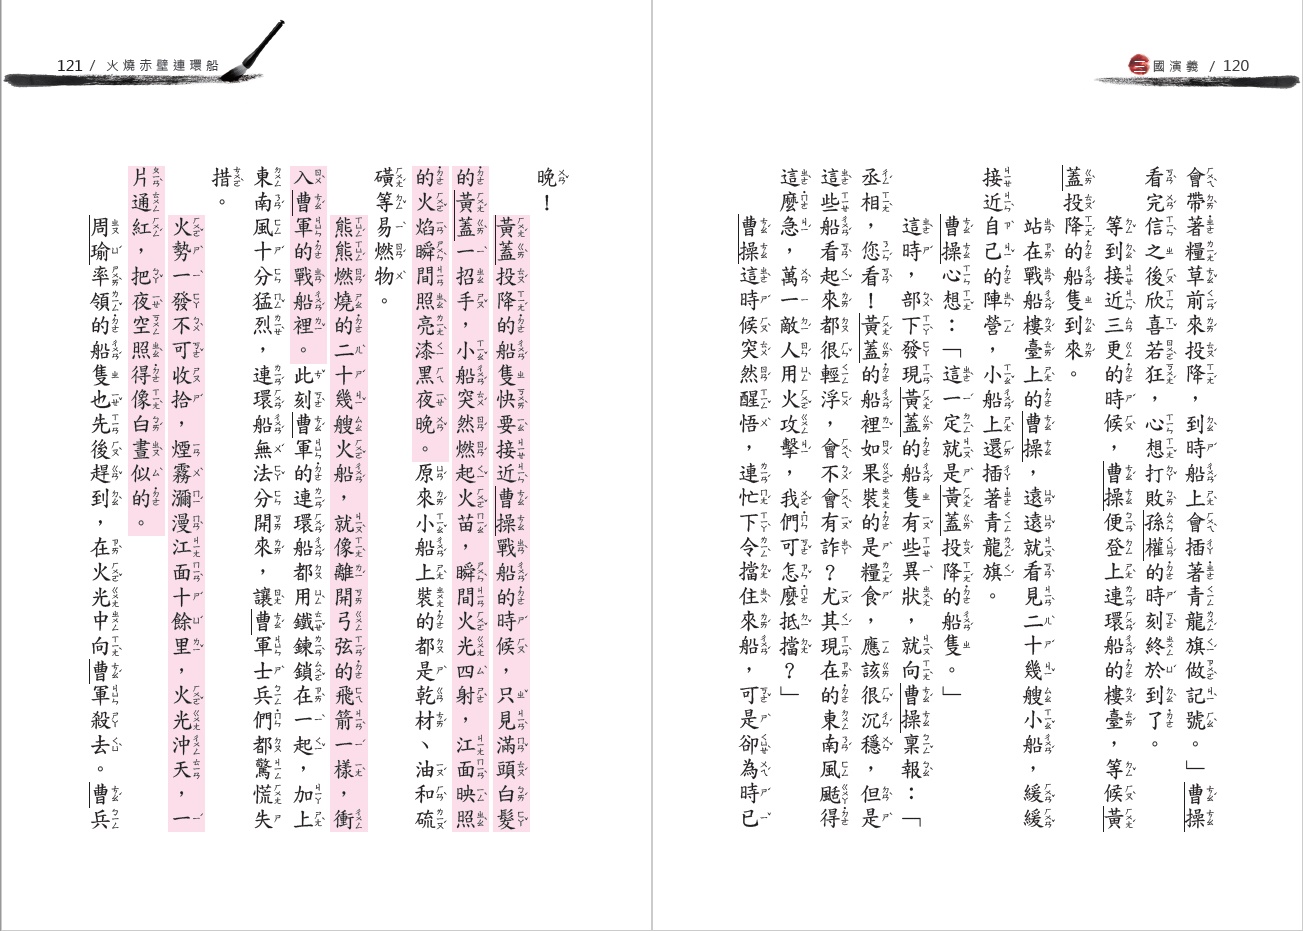 三國演義 / 120
會帶著糧草前來投降，到時船上會插著青龍旗做記號。」曹操
看完信之後欣喜若狂，心想打敗孫權的時刻終於到了。
等到接近三更的時候，曹操便登上連環船的樓臺，等候黃
蓋投降的船隻到來。
站在戰船樓臺上的曹操，遠遠就看見二十幾艘小船，緩緩
接近自己的陣營，小船上還插著青龍旗。
曹操心想：「這一定就是黃蓋投降的船隻。」
這時，部下發現黃蓋的船隻有些異狀，就向曹操稟報：「
丞相，您看！黃蓋的船裡如果裝的是糧食，應該很沉穩，但是
這些船看起來都很輕浮，會不會有詐？尤其現在的東南風颳得
這麼急，萬一敵人用火攻擊，我們可怎麼抵擋？」
曹操這時候突然醒悟，連忙下令擋住來船，可是卻為時已
121 / 火燒赤壁連環船
晚！
黃蓋投降的船隻快要接近曹操戰船的時候，只見滿頭白髮
的黃蓋一招手，小船突然燃起火苗，瞬間火光四射，江面映照
的火焰瞬間照亮漆黑夜晚。原來小船上裝的都是乾材、油和硫
磺等易燃物。
熊熊燃燒的二十幾艘火船，就像離開弓弦的飛箭一樣，衝
入曹軍的戰船裡。此刻曹軍的連環船都用鐵鍊鎖在一起，加上
東南風十分猛烈，連環船無法分開來，讓曹軍士兵們都驚慌失
措。
火勢一發不可收拾，煙霧瀰漫江面十餘里，火光沖天，一
片通紅，把夜空照得像白晝似的。
周瑜率領的船隻也先後趕到，在火光中向曹軍殺去。曹兵